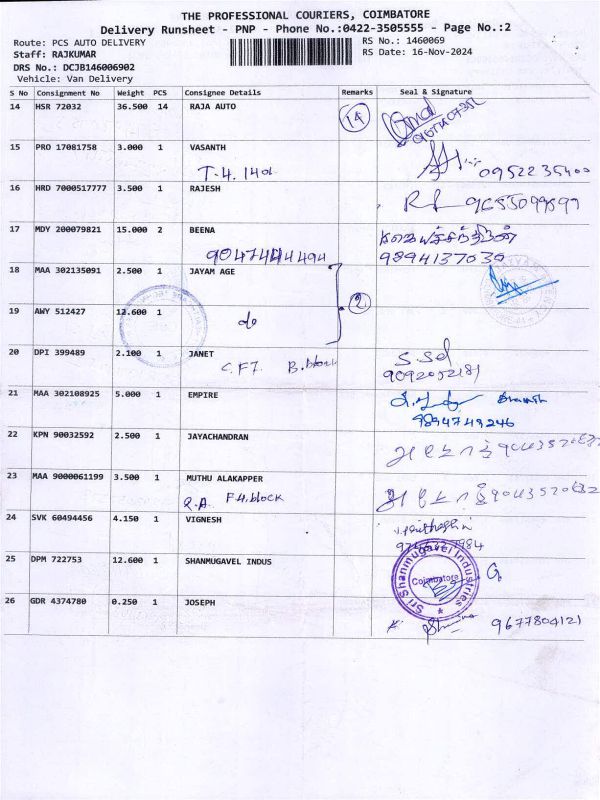 THE PROFESSIONAL COURIERS, COIMBATORE
Delivery Runsheet - PNP - Phone No.:0422-3505555 - Page No.:2
Route: PCS AUTO DELIVERY
RS No.: 1460069
Staff: RAJKUMAR
RS Date: 16-Nov-2024
DRS No.: DCJB146006902
Vehicle: Van Delivery
S No Consignment No Weight PCS Consignee Details Remarks Seal & Signature
14 HSR 72032 36.500 14 RAJA AUTO 14
15 PRO 17081758 3.000 1 VASANTH
T-4. 0952235400
16 HRD 7000517777 3.500 1 RAJESH
17 MDY 200079821 15.000 2 BEENA
9047444494 9894137035
18 MAA 302135091 2.500 1 JAYAM AGE
2
19 AWY 512427 12.600 1
do
20 DPI 399489 2.100 1 JANET
C.F7. B.block 9092052181
21 MAA 302108925 5.000 1 EMPIRE
9894749246
22 KPN 90032592 2.500 1 JAYACHANDRAN
23 MAA 9000061199 3.500 1 MUTHU ALAKAPPER
F4.block
24 SVK 60494456 4.150 1 VIGNESH
25 DPM 722753 12.600 1 SHANMUGAVEL INDUS
Sri Shanmugavel Industries
Coimbatore
26 GDR 4374780 0.250 1 JOSEPH
9677804121